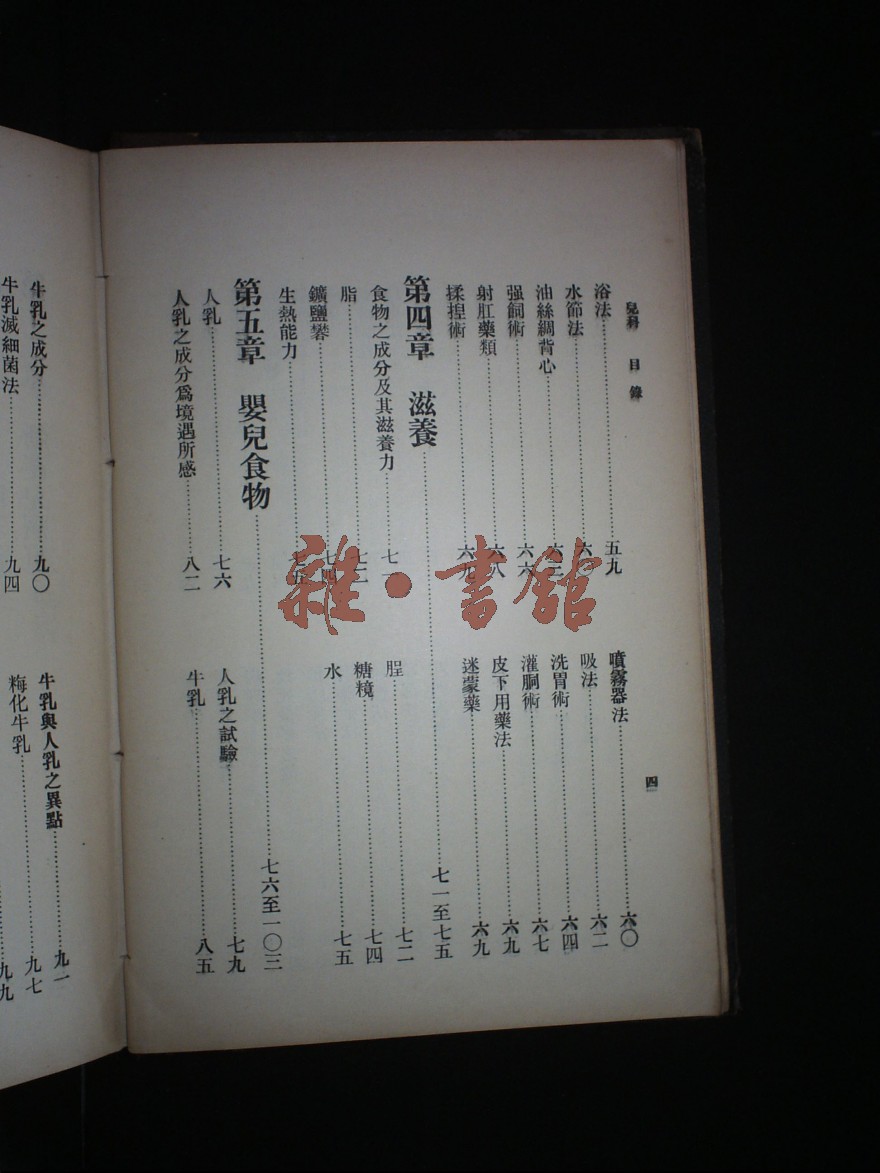 兒科 目錄
四
浴法 五九
噴霧器法 六〇
水節法
吸法 六二
油絲綢背心
洗胃術 六四
强飼術 六六
灌胴術 六七
射肛藥類 六八
皮下用藥法 六九
揉捏術 六九
迷蒙藥 六九
第四章 滋養 七一至七五
食物之成分及其滋養力 七一
脭 七二
脂 七二
糖糡 七四
鑛鹽礬 七四
水 七五
生熱能力 七五
第五章 嬰兒食物 七六至一〇三
人乳 七六
人乳之試驗 七九
人乳之成分爲境遇所感 八二
牛乳 八五
牛乳之成分 九〇
牛乳與人乳之異點 九一
牛乳滅細菌法 九四
糆化牛乳 九七
九九
雜·書館